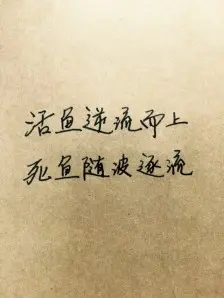 活鱼逆流而上
死鱼随波逐流